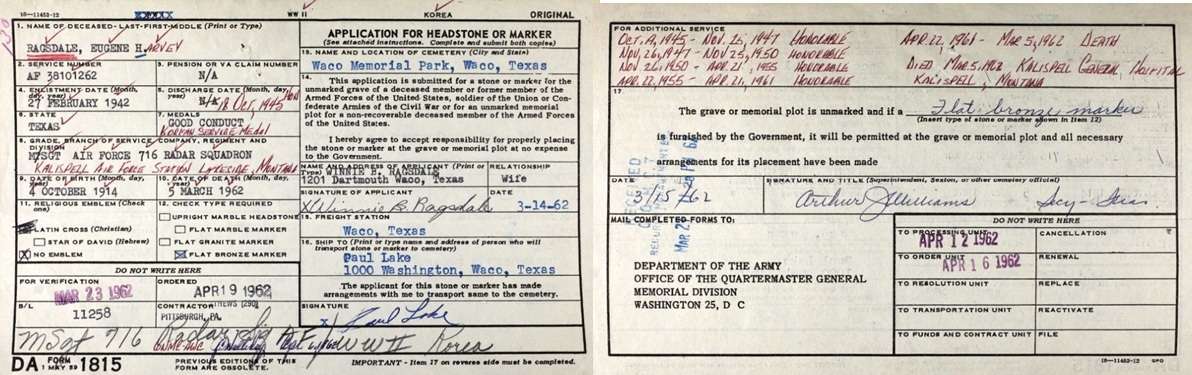 16—11453-12
WW II
KOREA
ORIGINAL
1. NAME OF DECEASED-LAST-FIRST-MIDDLE (Print or Type)
RAGSDALE, EUGENE HARVEY
2. SERVICE NUMBER
AF 38101262
3. PENSION OR VA CLAIM NUMBER
N/A
4. ENLISTMENT DATE (Month, day, year)
27 FEBRUARY 1942
5. DISCHARGE DATE (Month, day, year)
N/A 18 Oct, 1945 HON
6. STATE
TEXAS
7. MEDALS
GOOD CONDUCT,
Korean Service Medal
8. GRADE, BRANCH OF SERVICE, COMPANY, REGIMENT AND DIVISION
M/SGT AIR FORCE 716 RADAR SQUADRON
KALISPELL AIR FORCE STATION LAKESIDE, MONTANA
9. DATE OF BIRTH (Month, day, year)
4 OCTOBER 1914
10. DATE OF DEATH (Month, day, year)
5 MARCH 1962
11. RELIGIOUS EMBLEM (Check one)
LATIN CROSS (Christian)
STAR OF DAVID (Hebrew)
X NO EMBLEM
12. CHECK TYPE REQUIRED
UPRIGHT MARBLE HEADSTONE
FLAT MARBLE MARKER
FLAT GRANITE MARKER
X FLAT BRONZE MARKER
DO NOT WRITE HERE
FOR VERIFICATION
MAR 23 1962
ORDERED
APR 19 1962
B/L
11258
CONTRACTOR
PITTSBURGH, PA.
APPLICATION FOR HEADSTONE OR MARKER
(See attached instructions. Complete and submit both copies)
13. NAME AND LOCATION OF CEMETERY (City and State)
Waco Memorial Park, Waco, Texas
14.
This application is submitted for a stone or marker for the
unmarked grave of a deceased member or former member of the
Armed Forces of the United States, soldier of the Union or Con-
federate Armies of the Civil War or for an unmarked memorial
plot for a non-recoverable deceased member of the Armed Forces
of the United States.
I hereby agree to accept responsibility for properly placing
the stone or marker at the grave or memorial plot at no expense
to the Government.
NAME AND ADDRESS OF APPLICANT (Print or Type)
WINNIE B. RAGSDALE
1201 Dartmouth Waco, Texas
RELATIONSHIP
Wife
SIGNATURE OF APPLICANT
X Winnie B. Ragsdale
DATE
3-14-62
15. FREIGHT STATION
Waco, Texas
16. SHIP TO (Print or type name and address of person who
will transport stone or marker to cemetery)
Paul Lake
1000 Washington, Waco, Texas
The applicant for this stone or marker has made
arrangements with me to transport same to the cemetery.
SIGNATURE
x Paul Lake
MSgt 716 Radar Sq AF WW II Korea
DA FORM 1 MAY 59 1815
PREVIOUS EDITIONS OF THIS
FORM ARE OBSOLETE.
IMPORTANT - Item 17 on reverse side must be completed.
FOR ADDITIONAL SERVICE
Oct. 19, 1945 - Nov. 25, 1947 HONORABLE
Nov. 26, 1947 - Nov 25, 1950 HONORABLE
Nov 26, 1950 - Apr. 21, 1955 HONORABLE
Apr. 22, 1955 - Apr. 21, 1961 HONORABLE
Apr. 22, 1961 - Mar 5, 1962 DEATH
DIED MAR. 5, 1962 KALISPELL GENERAL HOSPITAL
KALISPELL, MONTANA
17
The grave or memorial plot is unmarked and if a Flat bronze marker
(Insert type of stone or marker shown in Item 12)
is furnished by the Government, it will be permitted at the grave or memorial plot and all necessary
arrangements for its placement have been made
DATE
3/15/62
SIGNATURE AND TITLE (Superintendent, Sexton, or other cemetery official)
Arthur J Williams Secy-Treas
MAIL COMPLETED FORMS TO:
DEPARTMENT OF THE ARMY
OFFICE OF THE QUARTERMASTER GENERAL
MEMORIAL DIVISION
WASHINGTON 25, D C
DO NOT WRITE HERE
TO PROCESSING UNIT
APR 12 1962
CANCELLATION
TO ORDER UNIT
APR 16 1962
RENEWAL
TO RESOLUTION UNIT
REPLACE
TO TRANSPORTATION UNIT
REACTIVATE
TO FUNDS AND CONTRACT UNIT
FILE
16—11453-12 GPO